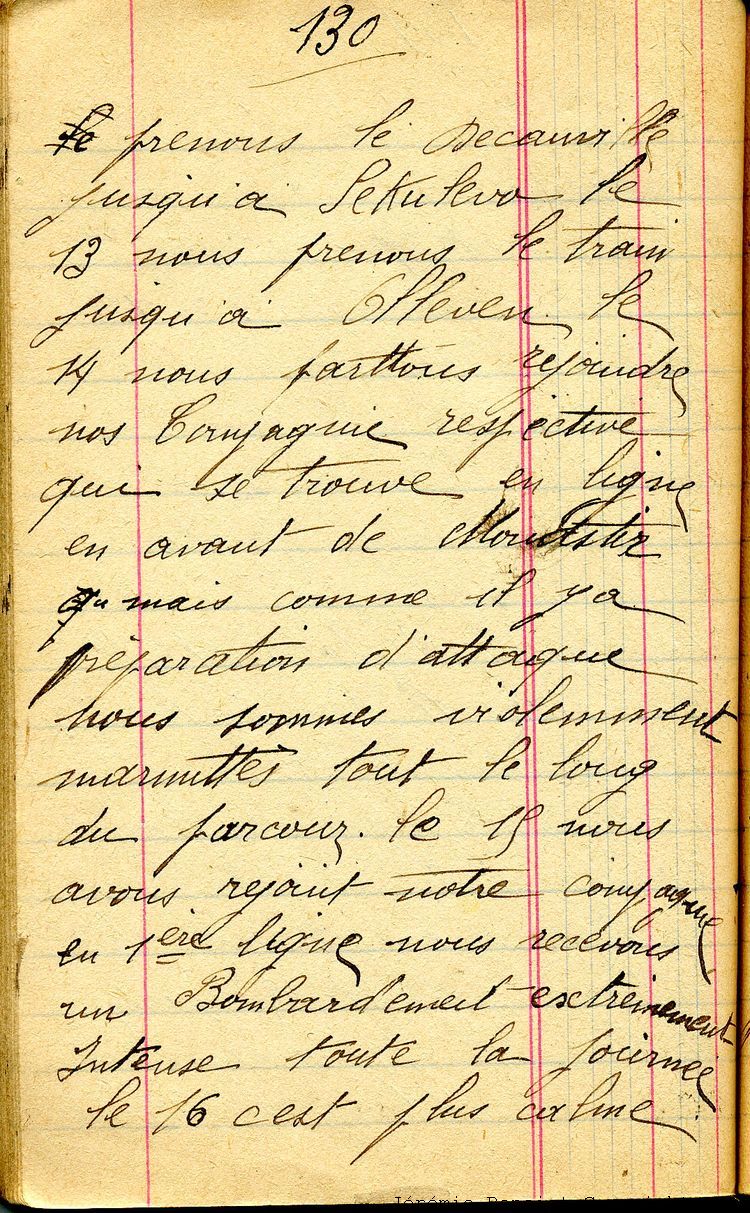 130
prenons le Decauville
jusqu'a Sekulevo le
13 nous prenons le train
jusqu'a Olleven le
14 nous parttons rejoindre
nos Compagnie respective
qui se trouve en ligne
en avant de Monastir
mais comme il ya
préparation d'attaque
nous sommes violemment
marmittés tout le long
du parcour. le 15 nous
avons rejoint notre compagnie
en 1ère ligne nous recevons
un Bombardement extremement
Intense toute la journée
le 16 cest plus calme